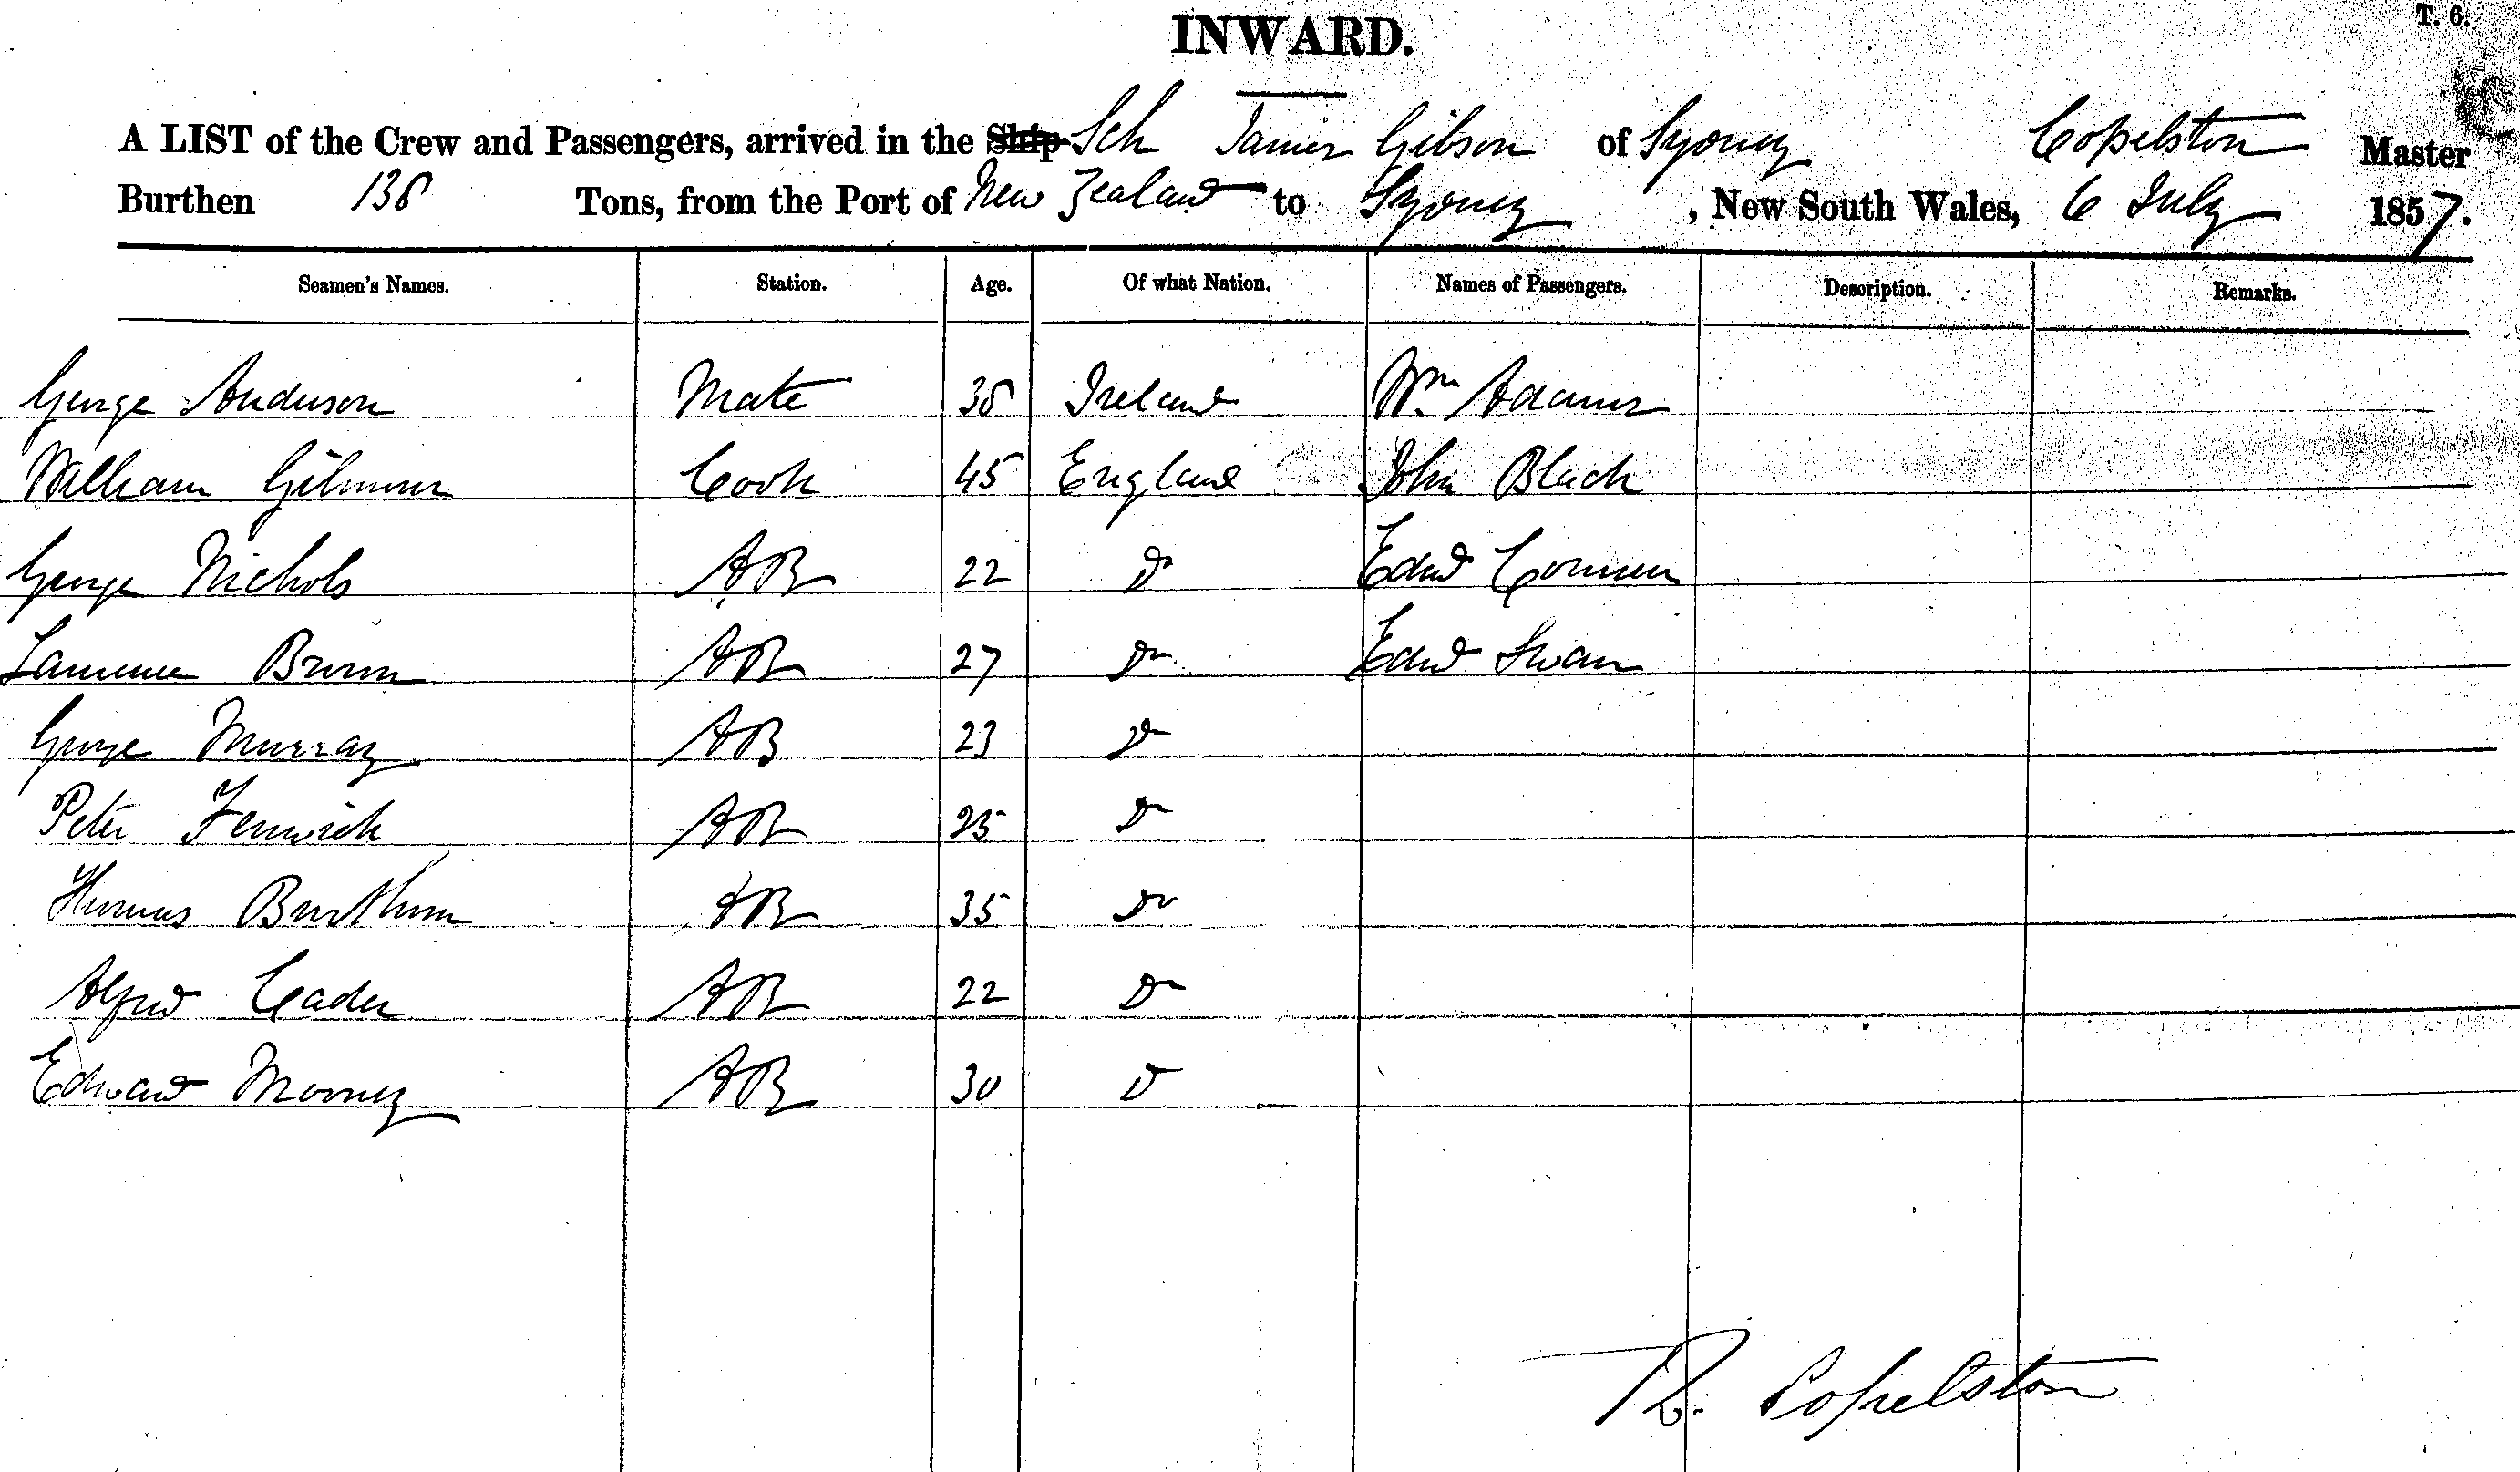 T. 6.
INWARD.
A LIST of the Crew and Passengers, arrived in the Ship Sch James Gibson of Sydney Copelston Master
Burthen 138 Tons, from the Port of New Zealand to Sydney, New South Wales, 6 July 1857.
Seamen's Names. Station. Age. Of what Nation. Names of Passengers. Description. Remarks.
George Anderson Mate 38 Ireland Wm Adams
William Gilmour Cook 45 England John Black
George Nichols AB 22 Do Edwd
Lawrence Brown AB 27 Do Edwd Swan
George Murray AB 23 Do
Peter Fenwick AB 25 Do
Thomas AB 35 Do
Alfred Cader AB 22 Do
Edward Mooney AB 30 D
R. Copelston